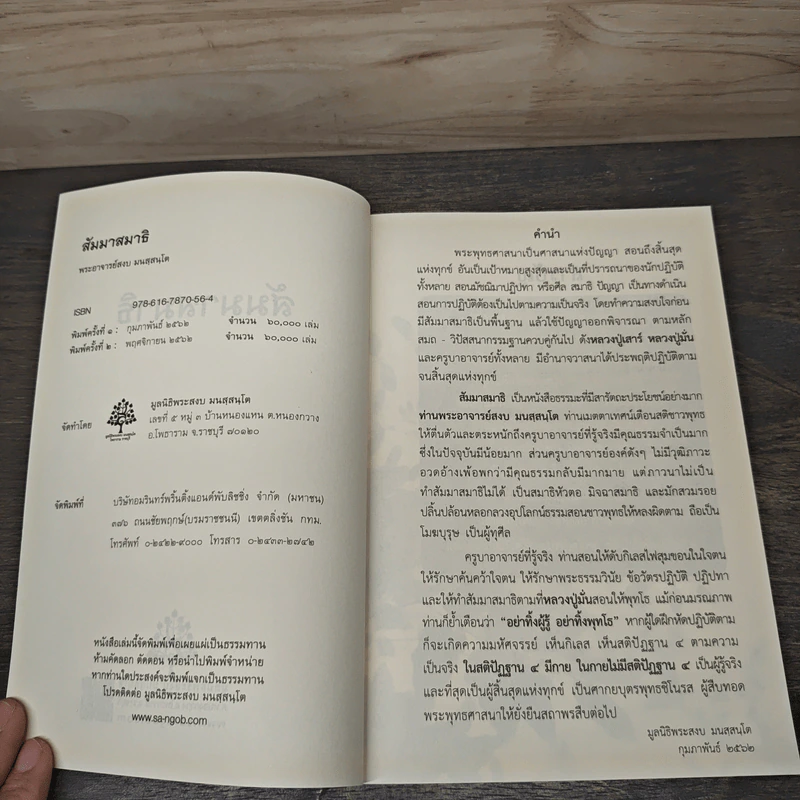 สัมมาสมาธิ
พระอาจารย์สงบ มนสฺสนฺโต
ISBN 978-616-7870-56-4
พิมพ์ครั้งที่ ๑ : กุมภาพันธ์ ๒๕๖๒ จำนวน ๖๐,๐๐๐ เล่ม
พิมพ์ครั้งที่ ๒ : พฤศจิกายน ๒๕๖๒ จำนวน ๖๐,๐๐๐ เล่ม
จัดทำโดย
มูลนิธิพระสงบ มนสฺสนฺโต
เลขที่ ๕ หมู่ ๓ บ้านหนองแหน ต.หนองกวาง
อ.โพธาราม จ.ราชบุรี ๗๐๑๒๐
จัดพิมพ์ที่ บริษัทอมรินทร์พริ้นติ้งแอนด์พับลิชชิ่ง จำกัด (มหาชน)
๓๗๖ ถนนชัยพฤกษ์(บรมราชชนนี) เขตตลิ่งชัน กทม.
โทรศัพท์ ๐-๒๔๒๒-๙๐๐๐ โทรสาร ๐-๒๔๓๓-๒๗๔๒
หนังสือเล่มนี้จัดพิมพ์เพื่อเผยแผ่เป็นธรรมทาน
ห้ามคัดลอก ตัดตอน หรือนำไปพิมพ์จำหน่าย
หากท่านใดประสงค์จะพิมพ์แจกเป็นธรรมทาน
โปรดติดต่อ มูลนิธิพระสงบ มนสฺสนฺโต
www.sa-ngob.com
คำนำ
พระพุทธศาสนาเป็นศาสนาแห่งปัญญา สอนถึงสิ้นสุด
แห่งทุกข์ อันเป็นเป้าหมายสูงสุดและเป็นที่ปรารถนาของนักปฏิบัติ
ทั้งหลาย สอนมัชฌิมาปฏิปทา หรือศีล สมาธิ ปัญญา เป็นทางดำเนิน
สอนการปฏิบัติต้องเป็นไปตามความเป็นจริง โดยทำความสงบใจก่อน
มีสัมมาสมาธิเป็นพื้นฐาน แล้วใช้ปัญญาออกพิจารณา ตามหลัก
สมถ - วิปัสสนากรรมฐานควบคู่กันไป ดังหลวงปู่เสาร์ หลวงปู่มั่น
และครูบาอาจารย์ทั้งหลาย มีอำนาจวาสนาได้ประพฤติปฏิบัติตาม
จนสิ้นสุดแห่งทุกข์
สัมมาสมาธิ เป็นหนังสือธรรมะที่มีสารัตถะประโยชน์อย่างมาก
ท่านพระอาจารย์สงบ มนสฺสนฺโต ท่านเมตตาเทศน์เตือนสติชาวพุทธ
ให้ตื่นตัวและตระหนักถึงครูบาอาจารย์ที่รู้จริงมีคุณธรรมจำเป็นมาก
ซึ่งในปัจจุบันมีน้อยมาก ส่วนครูบาอาจารย์องค์ดังๆ ไม่มีวุฒิภาวะ
อวดอ้างเพ้อพกว่ามีคุณธรรมกลับมีมากมาย แต่ภาวนาไม่เป็น
ทำสัมมาสมาธิไม่ได้ เป็นสมาธิหัวตอ มิจฉาสมาธิ และมักสวมรอย
ปลิ้นปล้อนหลอกลวงอุปโลกน์ธรรมสอนชาวพุทธให้หลงผิดตาม ถือเป็น
โมฆบุรุษ เป็นผู้ทุศีล
ครูบาอาจารย์ที่รู้จริง ท่านสอนให้ดับกิเลสไฟสุมขอนในใจตน
ให้รักษาค้นคว้าใจตน ให้รักษาพระธรรมวินัย ข้อวัตรปฏิบัติ ปฏิปทา
และให้ทำสัมมาสมาธิตามที่หลวงปู่มั่นสอนให้พุทโธ แม้ก่อนมรณภาพ
ท่านก็ย้ำเตือนว่า “อย่าทิ้งผู้รู้ อย่าทิ้งพุทโธ” หากผู้ใดฝึกหัดปฏิบัติตาม
ก็จะเกิดความมหัศจรรย์ เห็นกิเลส เห็นสติปัฏฐาน ๔ ตามความ
เป็นจริง ในสติปัฏฐาน ๔ มีกาย ในกายไม่มีสติปัฏฐาน ๔ เป็นผู้รู้จริง
และที่สุดเป็นผู้สิ้นสุดแห่งทุกข์ เป็นศากยบุตรพุทธชิโนรส ผู้สืบทอด
พระพุทธศาสนาให้ยั่งยืนสถาพรสืบต่อไป
มูลนิธิพระสงบ มนสฺสนฺโต
กุมภาพันธ์ ๒๕๖๒